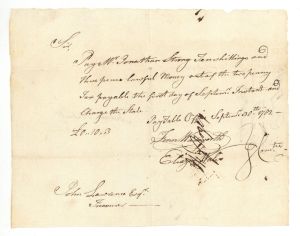 Sir
Pay Mr Jonathan Strong Ten shillings and
three pence lawful Money out of the two penny
Tax payable the first day of Instant and
Charge the State
Pay Table Office Septemr 1782
£0.10.3
Fenn Wadsworth
John Lawrence Esqr
Treasurer